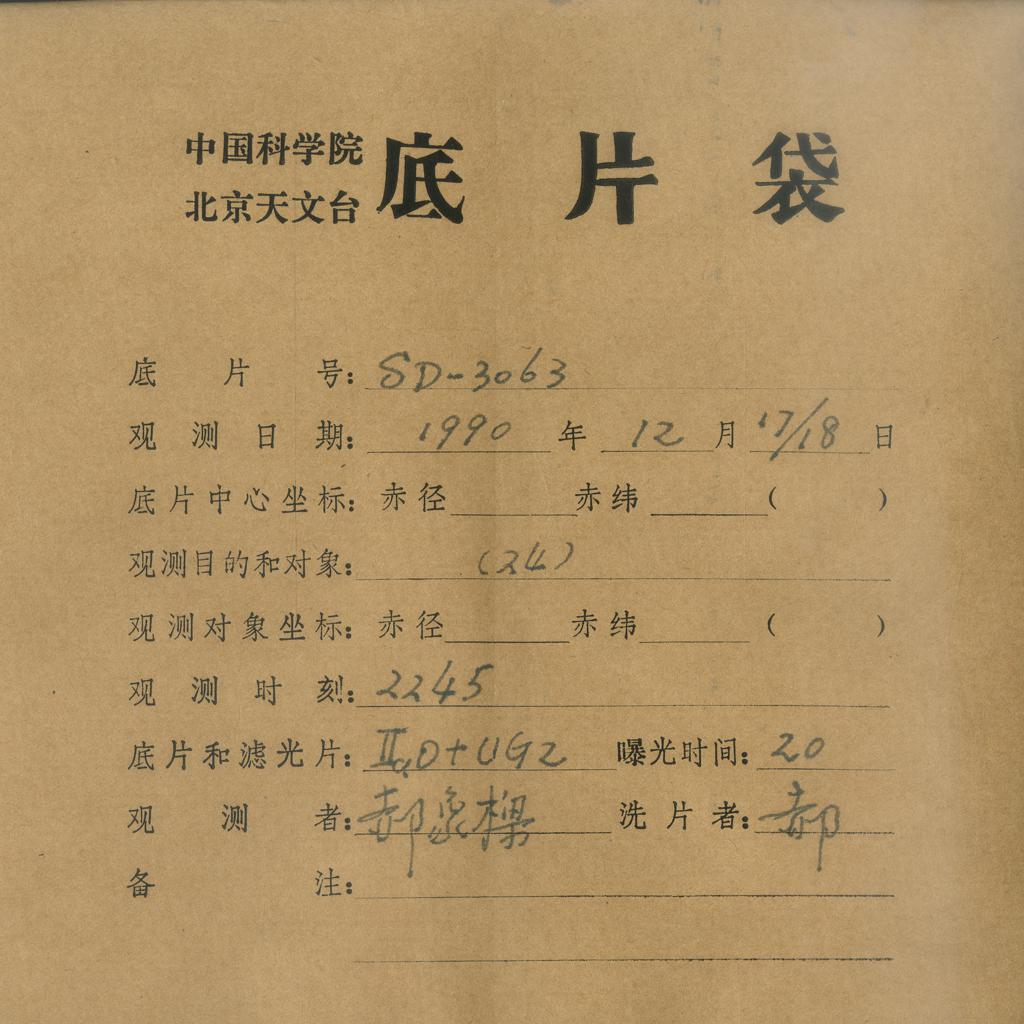 中国科学院
北京天文台 底片袋
底片号: SD-3063
观测日期: 1990 年 12 月 17/18 日
底片中心坐标: 赤径 赤纬 ( )
观测目的和对象: (24)
观测对象坐标: 赤径 赤纬 ( )
观测时刻: 2245
底片和滤光片: IIaO+UG2 曝光时间: 20
观测者: 郝象樑 洗片者: 郝
备注: